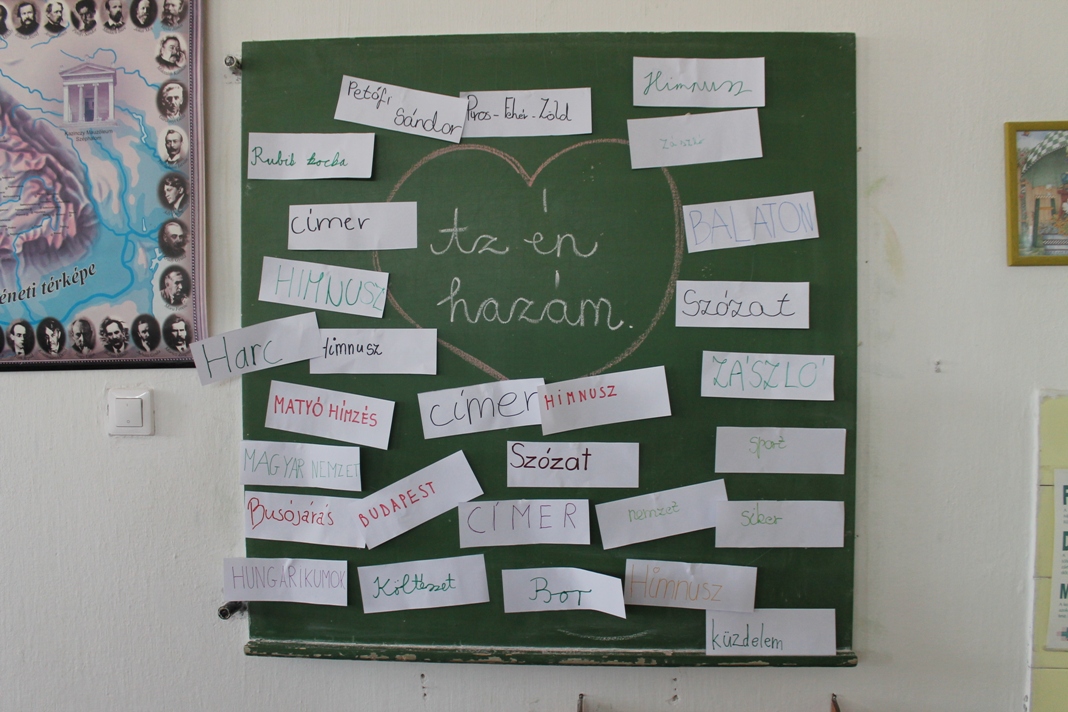 éneti térképe
Petőfi
Sándor
Piros-Fehér-Zöld
Himnusz
Zászló
Rubik kocka
címer
Az én
hazám.
BALATON
HIMNUSZ
Szózat
Harc
Himnusz
ZÁSZLÓ
MATYÓ HÍMZÉS
címer
HIMNUSZ
sport
MAGYAR NEMZET
Szózat
Busójárás
BUDAPEST
CÍMER
nemzet
siker
HUNGARIKUMOK
Költészet
Bor
Himnusz
küzdelem